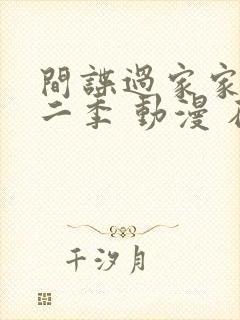 間諜過家家
二季 動漫
千汐月